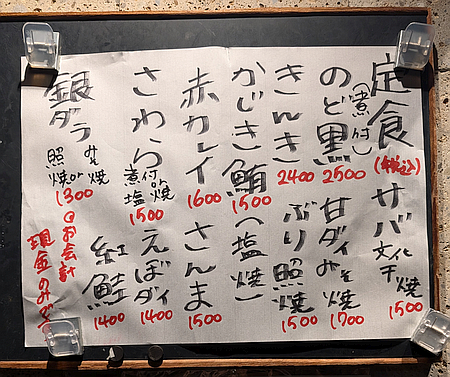 定食
(税込)
サバ文化干焼
1500
のど黒
(煮付)
2500
甘ダイみそ焼
1700
きんき
2400
ぶり照焼
1500
かじき鮪
1500
(塩焼)
赤カレイ
1600
さんま
1500
さわら
煮付or塩焼
1500
えぼダイ
1400
銀ダラ
みそ焼or照焼
1300
紅鮭
1400
お会計
現金のみです